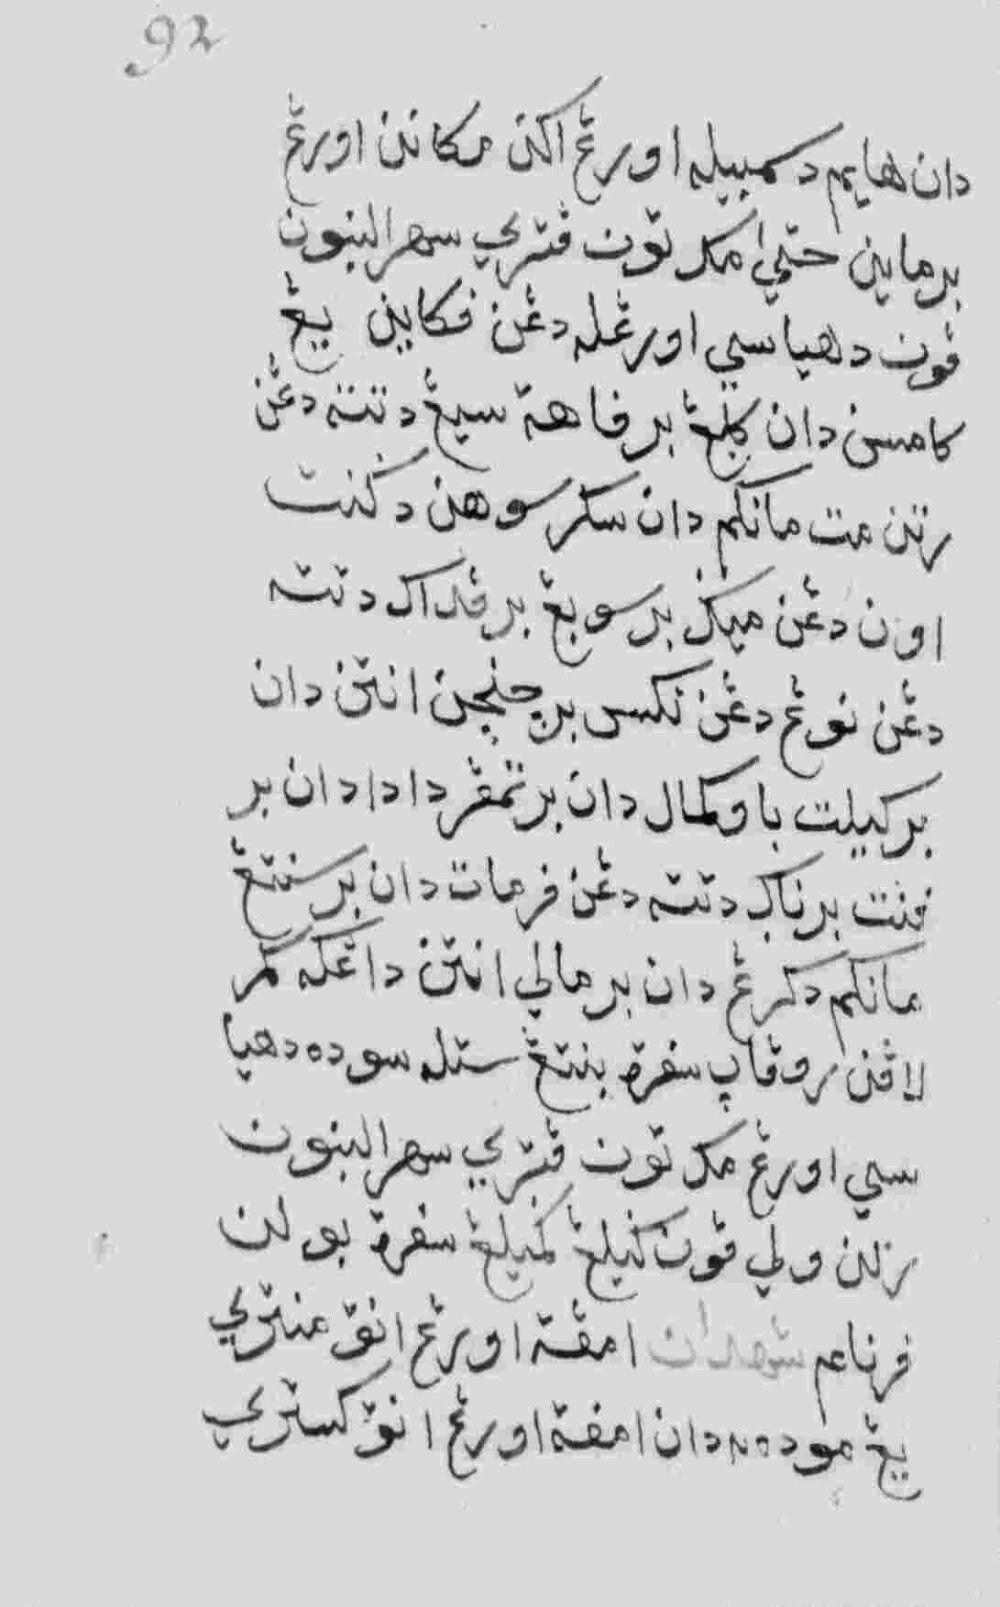 92
دان هايم دسمبيله اورڠ اكن مكانن اورڠ
برماين حتي مك تون ڤتري سهرالبنون
ڤون دهياسي اورڠله دڠن ڤكاين يڠ
كامسن دان كلڠ برفاهة سيڠ دتته دڠن
رتن مت مانكم دان سكر سوهن دكنت
اون دڠن ميك برسوبڠ برڤداك دتته
دڠن نوڠ دڠن نكس برچنچن انتن دان
بركيلت باوكمال دان برتمڤر دادا دان بر
فنت برناك دتته دڠن فرمات دان برسنتڠ
مانكم دكرڠ دان برمالي انتن داڠكه كمر
لاڤن روڤاڽ سفرة بنتڠ ستله سوده دهيا
سي اورڠ مك تون ڤتري سهرالبنون
زلن ولي ڤون كيلڠ كميلڠ سفرة بولن
فرنام شهدان امڤة اورڠ انق منتري
يڠ موده٢ دان امفة اورڠ انق كستري